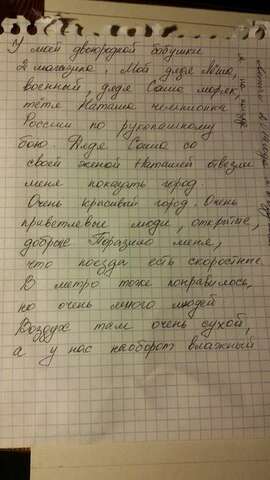 У моей двоюродной бабушки
2 мальчика. Мой дядя Лёша,
военный, дядя Саша моряк,
тётя Наташа чемпионка
России по рукопашному
бою. Дядя Саша со
своей женой Наташей отвезли
меня показать город.
Очень красивый город. Очень
приветлевые люди, открытые,
добрые. Поразило меня,
что поезда есть скоростные.
В метро тоже понравилось,
но очень много людей
Воздух там очень сухой,
а у нас наоборот влажный